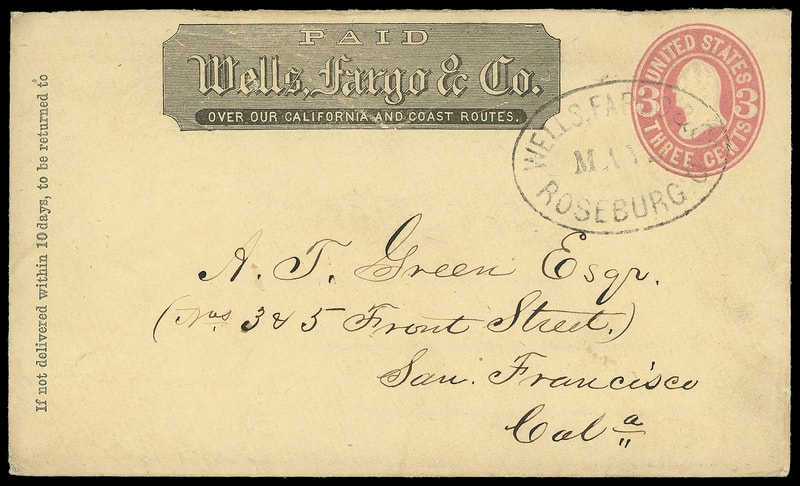 PAID
Wells, Fargo & Co.
OVER OUR CALIFORNIA AND COAST ROUTES.
UNITED STATES
3 3
THREE CENTS
WELLS, FARGO &
MAY
ROSEBURG
A. T. Green Esqr.
(Nos 3 & 5 Front Street.)
San. Francisco
Cala
If not delivered within 10 days, to be returned to